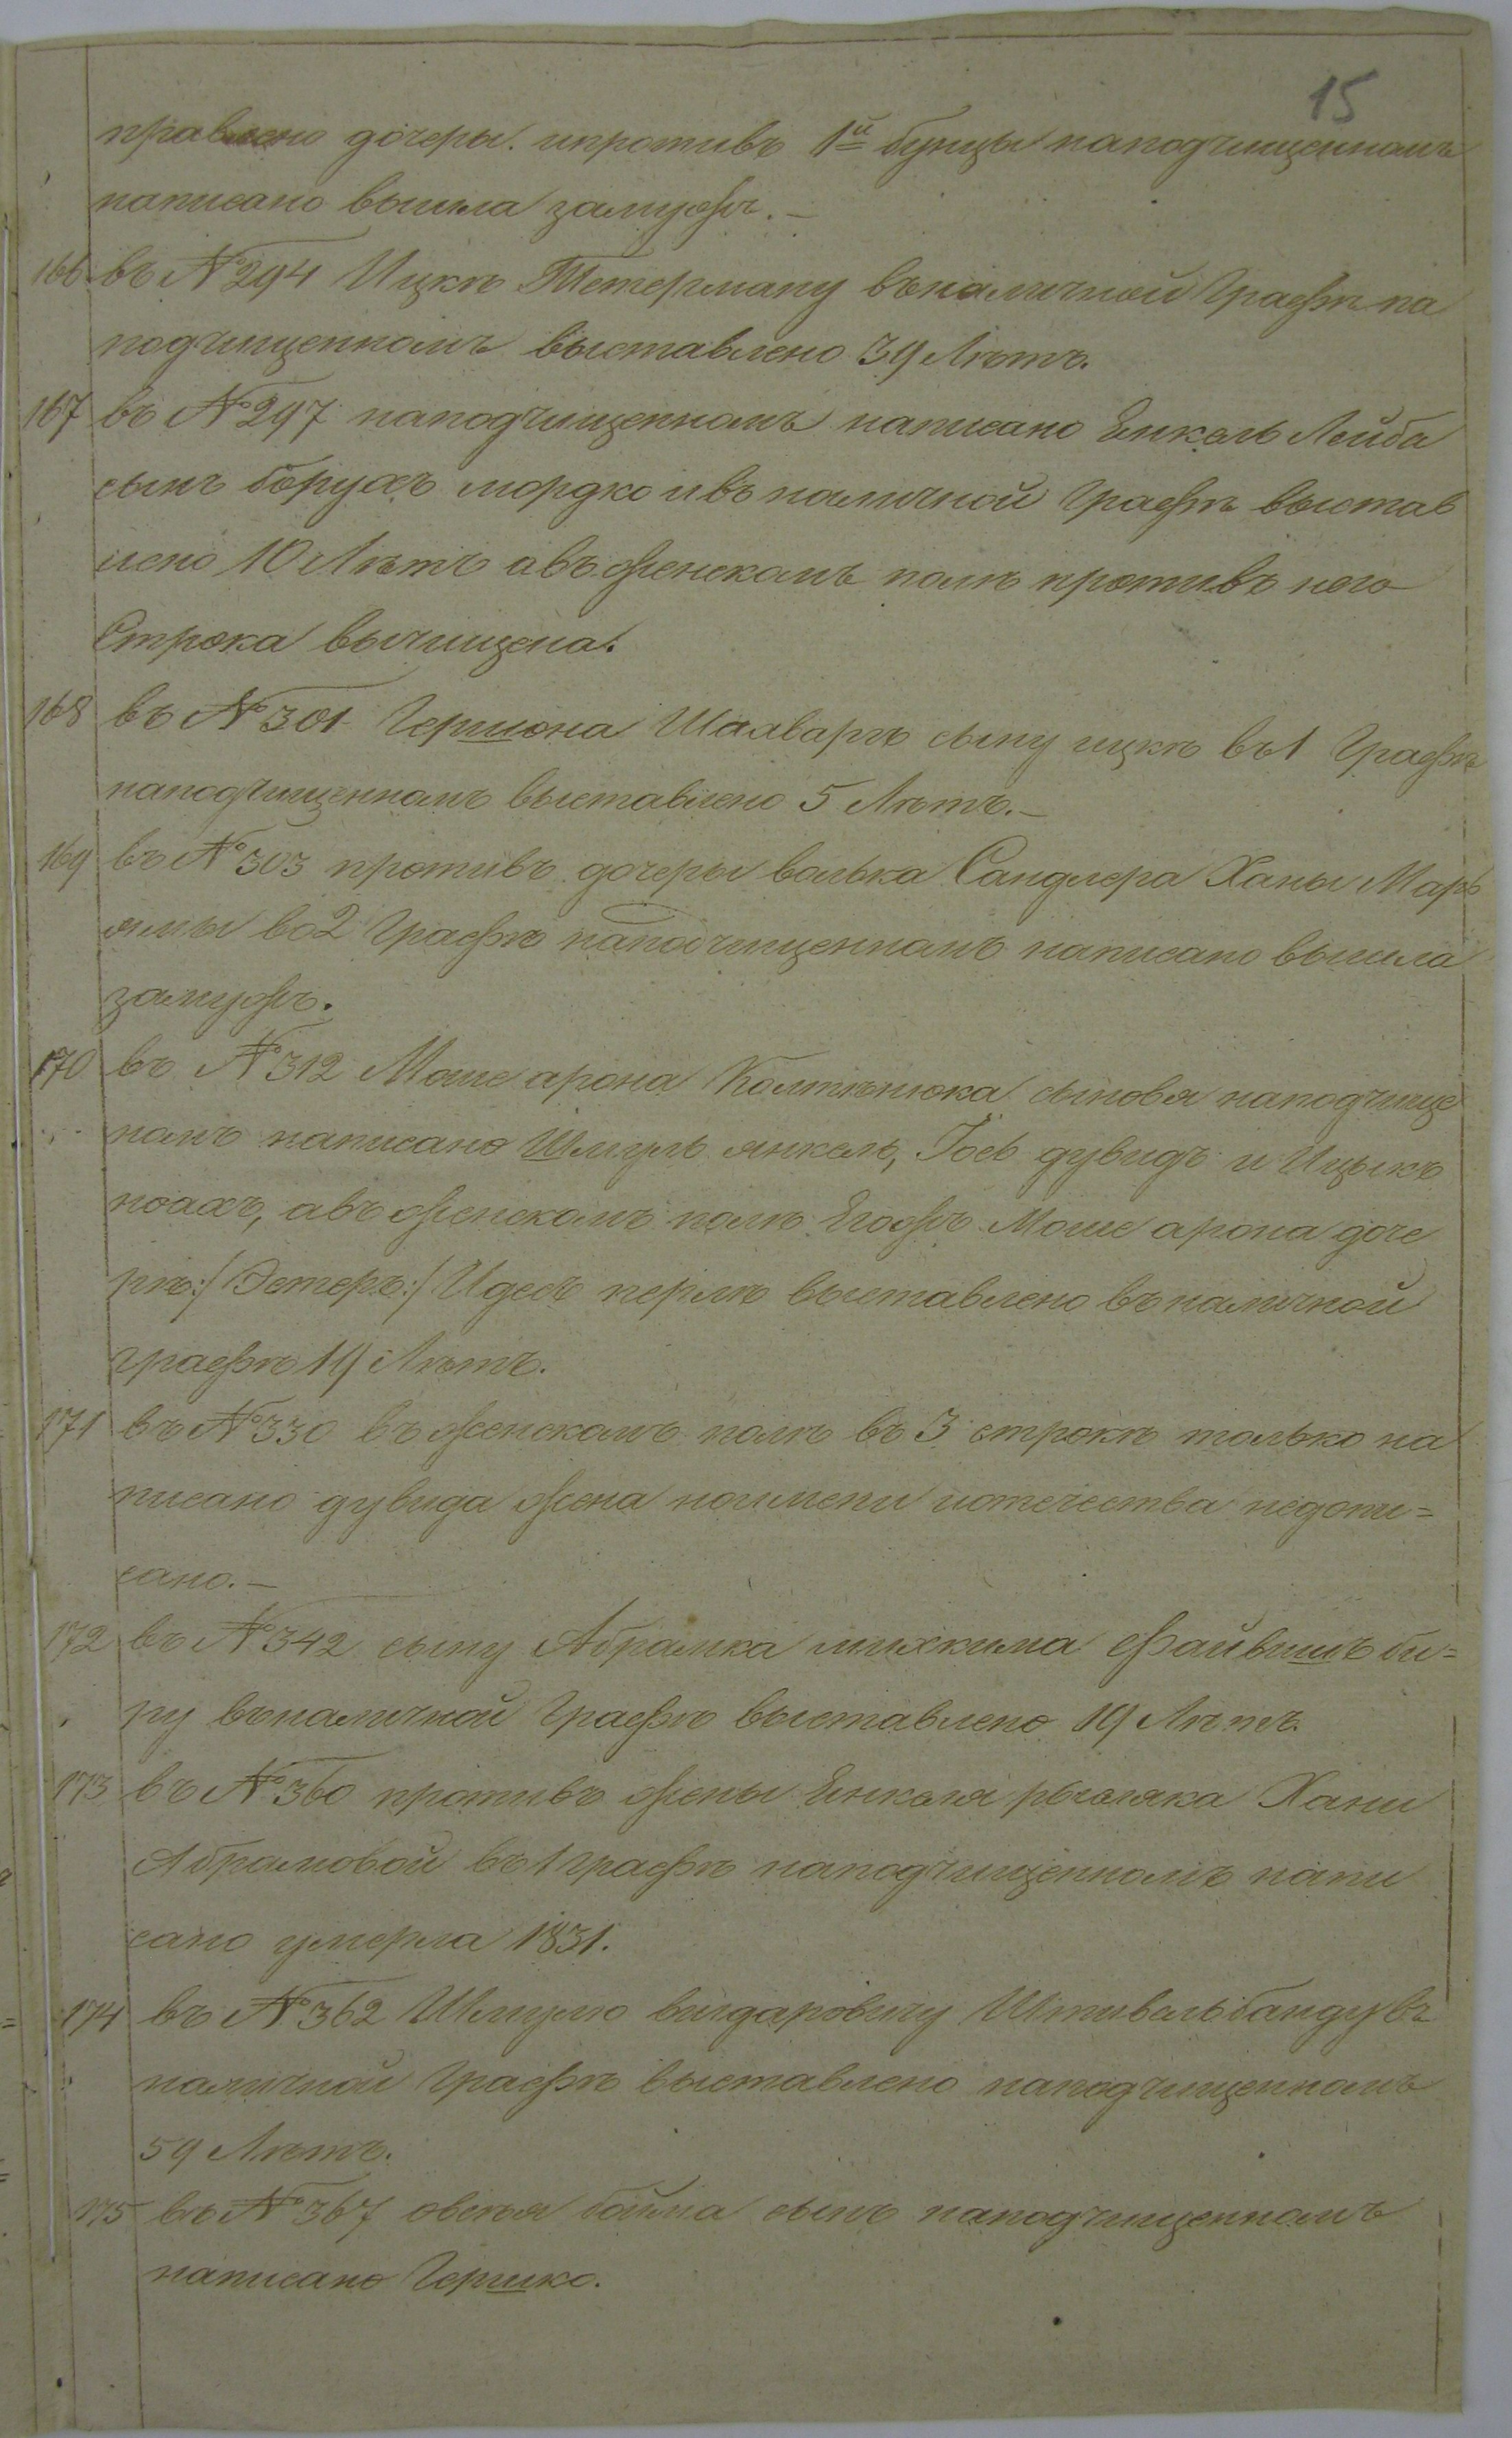 15
правлено дочеры. ипротивъ 1й бунцы наподчищенномъ
написано вышла замужъ.–
166 въ №294 Ицкѣ Тетерману въналичной Графѣ на
подчищенномъ выставлено 39 Лѣтъ.
167 въ №297 наподчищенномъ написано Енкель Лейба
сынъ борухъ мордко ивъ наличной Графѣ выстав
лено 10 Лѣтъ авъ женскомъ полѣ противъ него
Строка вычищена.
168 въ №301 Гершона Шаяваргъ сыну ицкѣ въ1 Графѣ
наподчищенномъ выставлено 5 Лѣтъ.–
169 въ №303 противъ дочеры волька Сандлера Ханы Марь
ямы во2 Графѣ наподчищенномъ написано вышла
замужъ.
170 въ №312 Моше арона Колтѣнюка сыновя наподчище
номъ написано Шмуль янкель, Іосъ дувидъ и Ицыкъ
ноахъ, авъ женскомъ полѣ Егожъ Моше арона доче
рѣ:/Эстеръ:/ Идесъ перлѣ выставлено въналичной
графѣ 19 Лѣтъ.
171 въ №330 въ женскомъ полѣ въ 3 строкѣ только на
писано дувида жена ноимени иотечества недопи=
сано.–
172 въ №342 сыну Абрамка Файвишъ би=
ру въналичной Графѣ выставлено 19 Лѣтъ.
173 въ №360 противъ жены Енкеля Хани
Абрамовой въ 1 графѣ наподчищенномъ напи
сано умерла 1831.
174 въ №362 Шмулю вигдаровичу Штивельбанду въ
наличной Графѣ выставлено наподчищенномъ
59 Лѣтъ.
175 въ №367 овсѣя сынъ наподчищенномъ
написано Гершко.